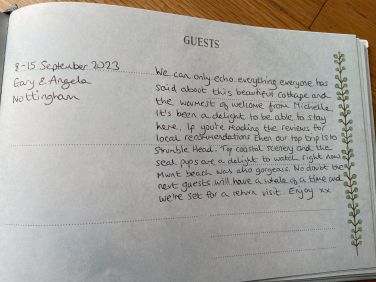 GUESTS
8-15 September 2023
Gary & Angela
Nottingham
We can only echo everything everyone has
said about this beautiful cottage and
the warmest of welcome from Michelle.
It's been a delight to be able to stay
here. If you're reading the reviews for
local recommendations then our top trip is to
Strumble Head. Top coastal scenery and the
seal pups are a delight to watch right now.
Mwnt beach was also gorgeous. No doubt the
next guests will have a whale of a time and
we're set for a return visit. Enjoy xx